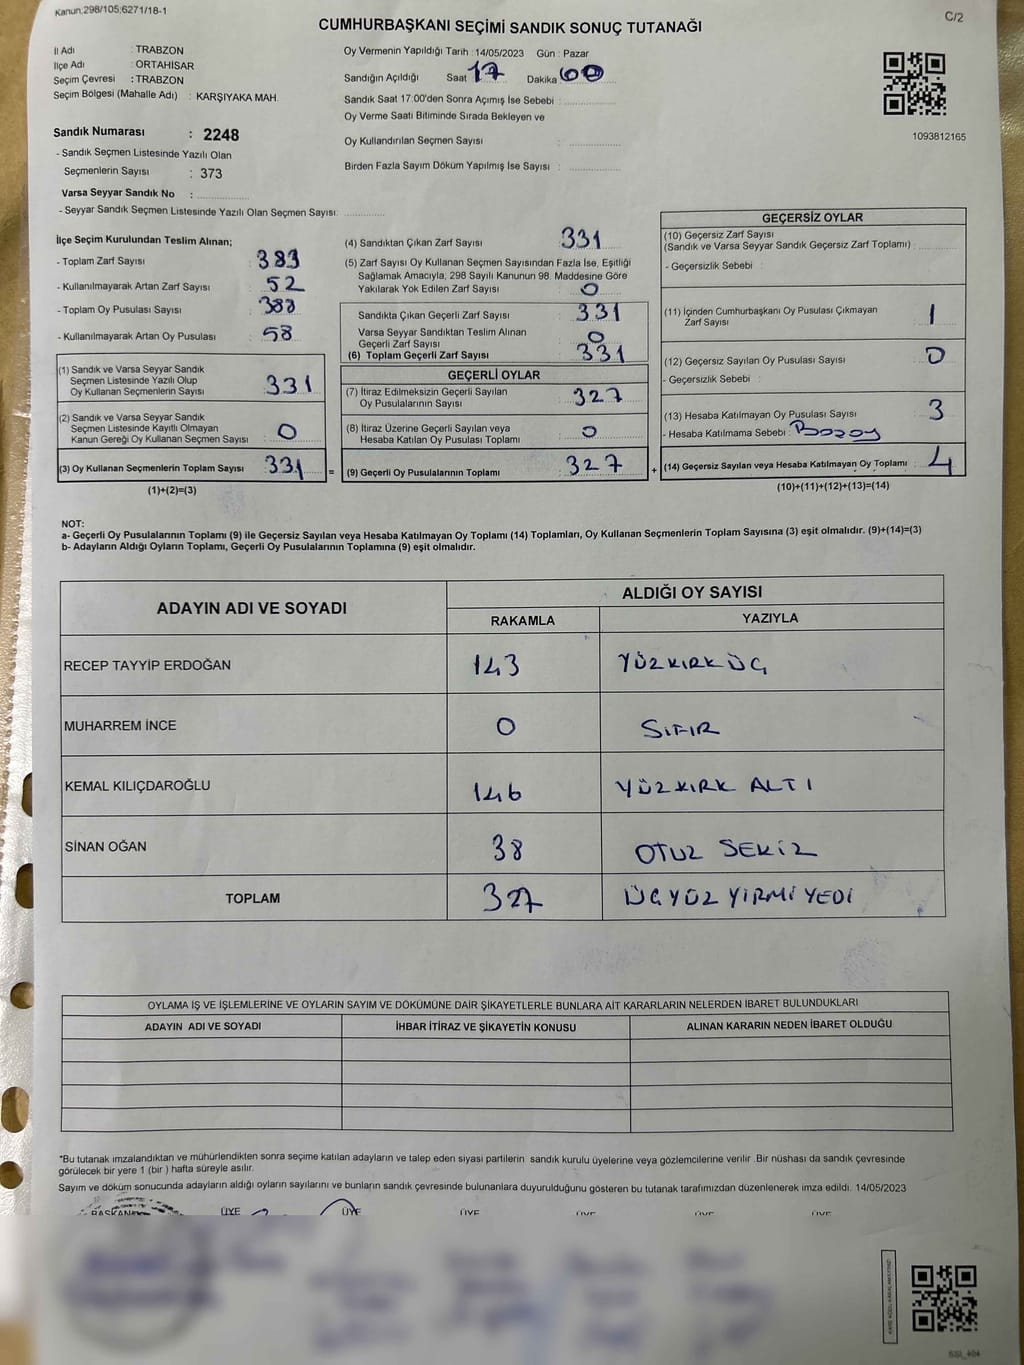 Kanun:298/105;6271/18-1
C/2
CUMHURBAŞKANI SEÇİMİ SANDIK SONUÇ TUTANAĞI
İl Adı : TRABZON
İlçe Adı : ORTAHİSAR
Seçim Çevresi : TRABZON
Seçim Bölgesi (Mahalle Adı) : KARŞIYAKA MAH.
Sandık Numarası : 2248
- Sandık Seçmen Listesinde Yazılı Olan
Seçmenlerin Sayısı : 373
Varsa Seyyar Sandık No :
- Seyyar Sandık Seçmen Listesinde Yazılı Olan Seçmen Sayısı:
Oy Vermenin Yapıldığı Tarih : 14/05/2023 Gün : Pazar
Sandığın Açıldığı Saat 17 Dakika 00
Sandık Saat 17:00'den Sonra Açımış İse Sebebi :
Oy Verme Saati Bitiminde Sırada Bekleyen ve
Oy Kullandırılan Seçmen Sayısı :
Birden Fazla Sayım Döküm Yapılmış İse Sayısı :
1093812165
İlçe Seçim Kurulundan Teslim Alınan;
- Toplam Zarf Sayısı : 383
- Kullanılmayarak Artan Zarf Sayısı : 52
- Toplam Oy Pusulası Sayısı :
- Kullanılmayarak Artan Oy Pusulası : 58
(1) Sandık ve Varsa Seyyar Sandık
Seçmen Listesinde Yazılı Olup
Oy Kullanan Seçmenlerin Sayısı : 331
(2) Sandık ve Varsa Seyyar Sandık
Seçmen Listesinde Kayıtlı Olmayan
Kanun Gereği Oy Kullanan Seçmen Sayısı : 0
(3) Oy Kullanan Seçmenlerin Toplam Sayısı : 331
(1)+(2)=(3)
=
(4) Sandıktan Çıkan Zarf Sayısı : 331
(5) Zarf Sayısı Oy Kullanan Seçmen Sayısından Fazla İse, Eşitliği
Sağlamak Amacıyla; 298 Sayılı Kanunun 98. Maddesine Göre
Yakılarak Yok Edilen Zarf Sayısı : 0
Sandıkta Çıkan Geçerli Zarf Sayısı : 331
Varsa Seyyar Sandıktan Teslim Alınan
Geçerli Zarf Sayısı : 0
(6) Toplam Geçerli Zarf Sayısı : 331
GEÇERLİ OYLAR
(7) İtiraz Edilmeksizin Geçerli Sayılan
Oy Pusulalarının Sayısı : 327
(8) İtiraz Üzerine Geçerli Sayılan veya
Hesaba Katılan Oy Pusulası Toplamı : 0
(9) Geçerli Oy Pusulalarının Toplamı : 327
+
GEÇERSİZ OYLAR
(10) Geçersiz Zarf Sayısı
(Sandık ve Varsa Seyyar Sandık Geçersiz Zarf Toplamı) :
- Geçersizlik Sebebi :
(11) İçinden Cumhurbaşkanı Oy Pusulası Çıkmayan
Zarf Sayısı : 1
(12) Geçersiz Sayılan Oy Pusulası Sayısı : 0
- Geçersizlik Sebebi :
(13) Hesaba Katılmayan Oy Pusulası Sayısı : 3
- Hesaba Katılmama Sebebi :
(14) Geçersiz Sayılan veya Hesaba Katılmayan Oy Toplamı : 4
(10)+(11)+(12)+(13)=(14)
NOT:
a- Geçerli Oy Pusulalarının Toplamı (9) ile Geçersiz Sayılan veya Hesaba Katılmayan Oy Toplamı (14) Toplamları, Oy Kullanan Seçmenlerin Toplam Sayısına (3) eşit olmalıdır. (9)+(14)=(3)
b- Adayların Aldığı Oyların Toplamı, Geçerli Oy Pusulalarının Toplamına (9) eşit olmalıdır.
ADAYIN ADI VE SOYADI
ALDIĞI OY SAYISI
RAKAMLA YAZIYLA
RECEP TAYYİP ERDOĞAN 143 YÜZKIRKÜÇ
MUHARREM İNCE 0 SIFIR
KEMAL KILIÇDAROĞLU 146 YÜZKIRK ALTI
SİNAN OĞAN 38 OTUZ SEKİZ
TOPLAM 327 ÜÇYÜZ YİRMİYEDİ
OYLAMA İŞ VE İŞLEMLERİNE VE OYLARIN SAYIM VE DÖKÜMÜNE DAİR ŞİKAYETLERLE BUNLARA AİT KARARLARIN NELERDEN İBARET BULUNDUKLARI
ADAYIN ADI VE SOYADI İHBAR İTİRAZ VE ŞİKAYETİN KONUSU ALINAN KARARIN NEDEN İBARET OLDUĞU
*Bu tutanak imzalandıktan ve mühürlendikten sonra seçime katılan adayların ve talep eden siyasi partilerin sandık kurulu üyelerine veya gözlemcilerine verilir. Bir nüshası da sandık çevresinde
görülecek bir yere 1 (bir) hafta süreyle asılır.
Sayım ve döküm sonucunda adayların aldığı oyların sayılarını ve bunların sandık çevresinde bulunanlara duyurulduğunu gösteren bu tutanak tarafımızdan düzenlenerek imza edildi. 14/05/2023
BAŞKAN ÜYE ÜYE ÜYE ÜYE ÜYE ÜYE